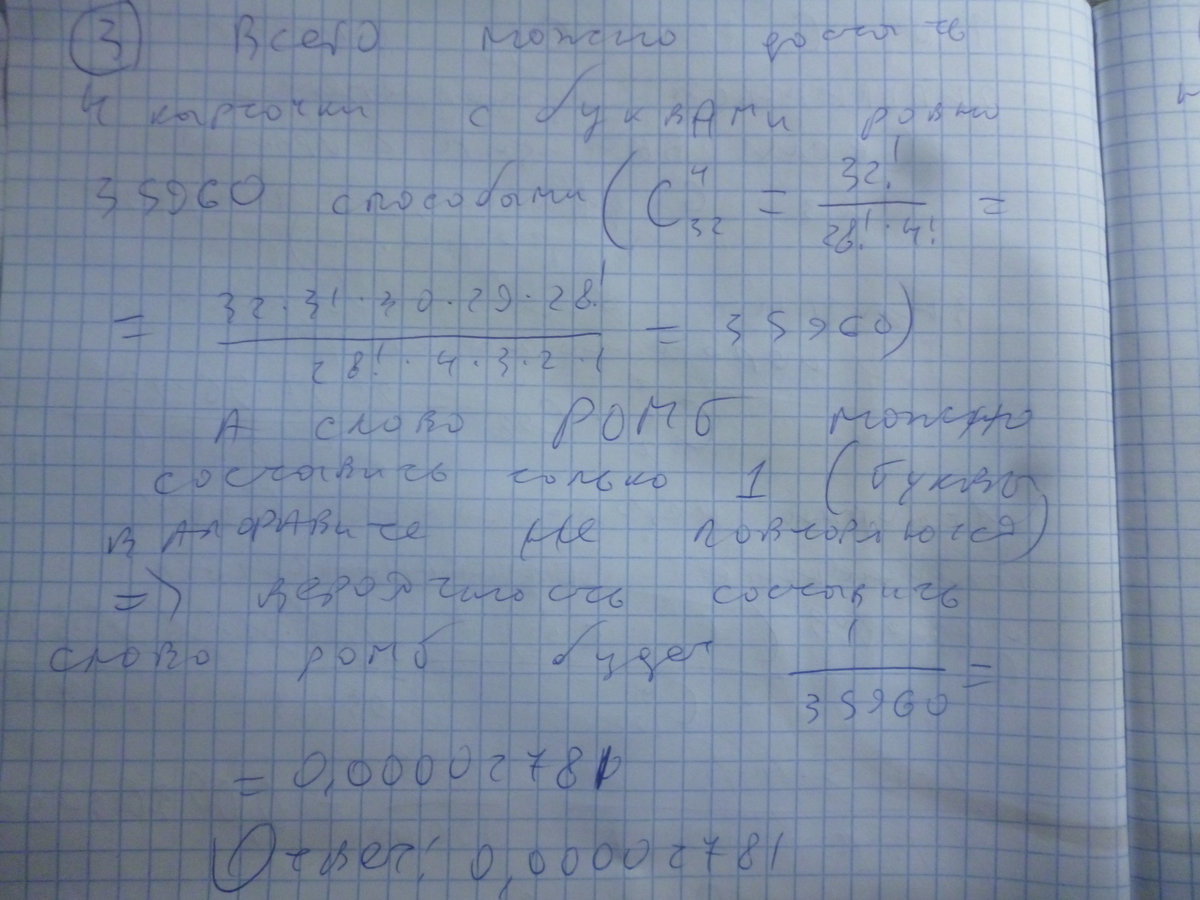 ③ Всего можно достать
4 карточки с буквАми ровно
35960 способами ( C⁴₃₂ = 32! / 28! · 4! =
= 32 · 31 · 30 · 29 · 28! / 28! · 4 · 3 · 2 · 1 = 35960)
А слово РОМб можно
составить только 1 (буквы
в АлфАвите не повторяются)
=> вероятность составить
слово ромб будет 1 / 35960 =
= 0,00002781
Ответ: 0,00002781